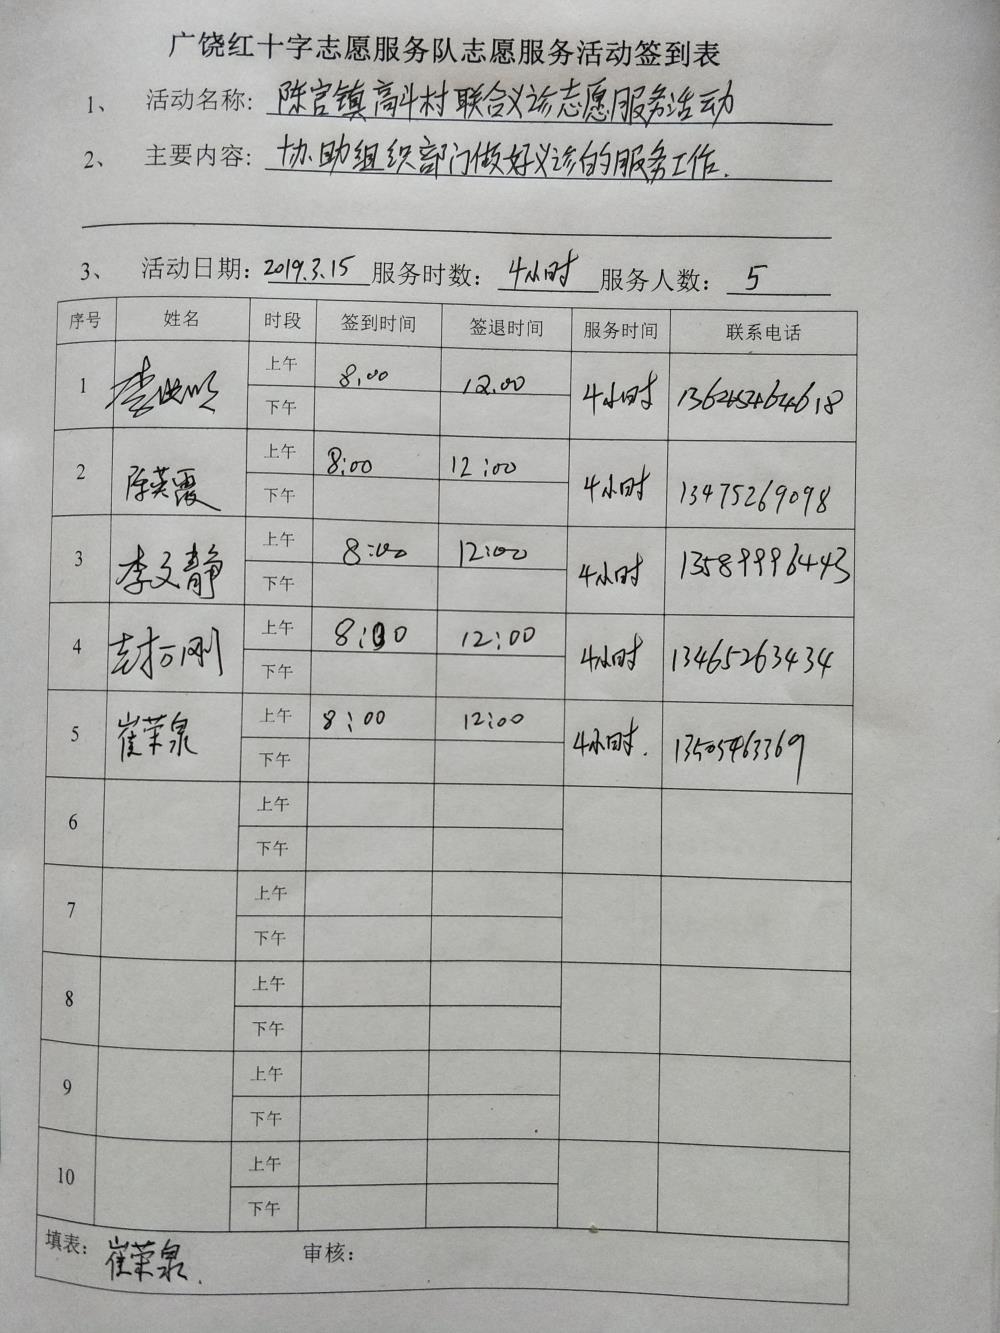 广饶红十字志愿服务队志愿服务活动签到表
1、 活动名称: 陈官镇高斗村联合义诊志愿服务活动
2、 主要内容: 协助组织部门做好义诊的服务工作.
3、 活动日期: 2019.3.15 服务时数: 4小时 服务人数: 5
序号 姓名 时段 签到时间 签退时间 服务时间 联系电话
1 李 上午 8:00 12:00 4小时
下午
2 陈英霞 上午 8:00 12:00 4小时 13475269098
下午
3 李文静 上午 8:00 12:00 4小时 13589996443
下午
4 封万刚 上午 8:00 12:00 4小时 13465263434
下午
5 崔荣泉 上午 8:00 12:00 4小时. 13505463369
下午
6 上午
下午
7 上午
下午
8 上午
下午
9 上午
下午
10 上午
下午
填表: 崔荣泉. 审核: